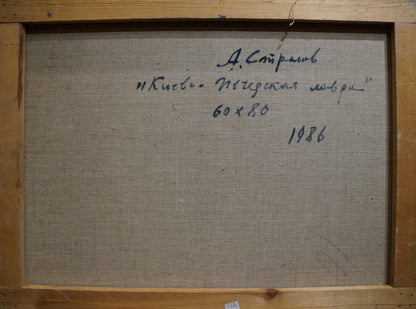 А. Стрелов
"Киево-Печерская лавра"
60x80
1986